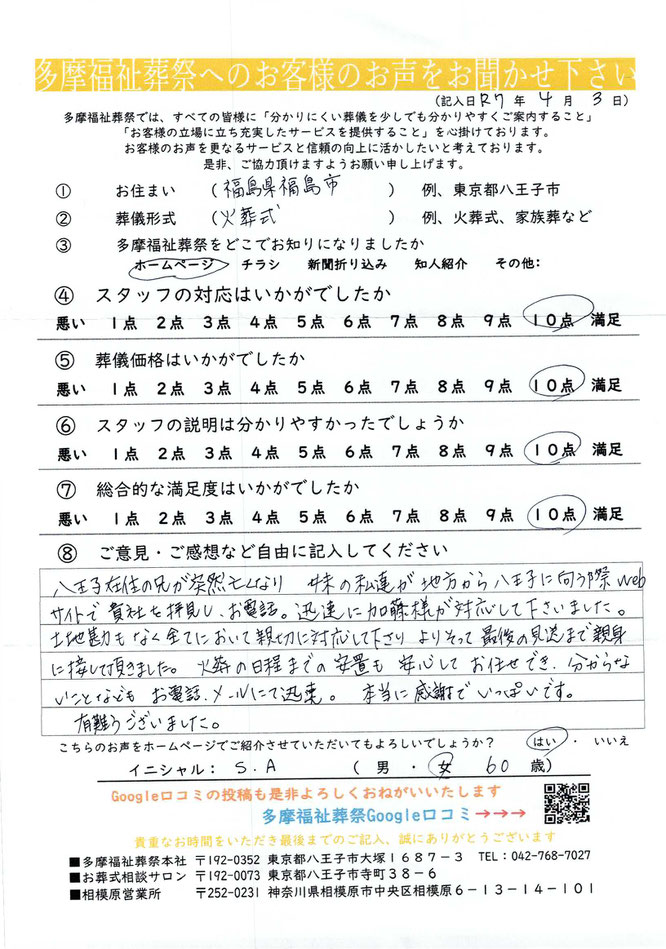 多摩福祉葬祭へのお客様のお声をお聞かせ下さい
(記入日 R7 年 4 月 3 日)
多摩福祉葬祭では、すべての皆様に「分かりにくい葬儀を少しでも分かりやすくご案内すること」
「お客様の立場に立ち充実したサービスを提供すること」を心掛けております。
お客様のお声を更なるサービスと信頼の向上に活かしたいと考えております。
是非、ご協力頂けますようお願い申し上げます。
① お住まい (福島県福島市) 例、東京都八王子市
② 葬儀形式 (火葬式) 例、火葬式、家族葬など
③ 多摩福祉葬祭をどこでお知りになりましたか
ホームページ チラシ 新聞折り込み 知人紹介 その他:
④ スタッフの対応はいかがでしたか
悪い 1点 2点 3点 4点 5点 6点 7点 8点 9点 10点 満足
⑤ 葬儀価格はいかがでしたか
悪い 1点 2点 3点 4点 5点 6点 7点 8点 9点 10点 満足
⑥ スタッフの説明は分かりやすかったでしょうか
悪い 1点 2点 3点 4点 5点 6点 7点 8点 9点 10点 満足
⑦ 総合的な満足度はいかがでしたか
悪い 1点 2点 3点 4点 5点 6点 7点 8点 9点 10点 満足
⑧ ご意見・ご感想など自由に記入してください
八王子在住の兄が突然亡くなり 妹の私達が地方から八王子に向う際web
サイトで貴社を拝見し、お電話。迅速に加藤様が対応して下さいました。
土地勘もなく全てにおいて親切に対応して下さり よりそって最後の見送まで親身
に接して頂きました。火葬の日程までの安置も安心してお任せでき、分からな
いことなども お電話、メールにて迅速。 本当に感謝でいっぱいです。
有難うございました。
こちらのお声をホームページでご紹介させていただいてもよろしいでしょうか? はい ・ いいえ
イニシャル: S.A (男 ・ 女 60 歳)
Google口コミの投稿も是非よろしくおねがいいたします
多摩福祉葬祭Google口コミ→→→
貴重なお時間をいただき最後までのご記入、誠にありがとうございます
■多摩福祉葬祭本社 〒192-0352 東京都八王子市大塚1687-3 TEL:042-768-7027
■お葬式相談サロン 〒192-0073 東京都八王子市寺町38-6
■相模原営業所 〒252-0231 神奈川県相模原市中央区相模原6-13-14-101